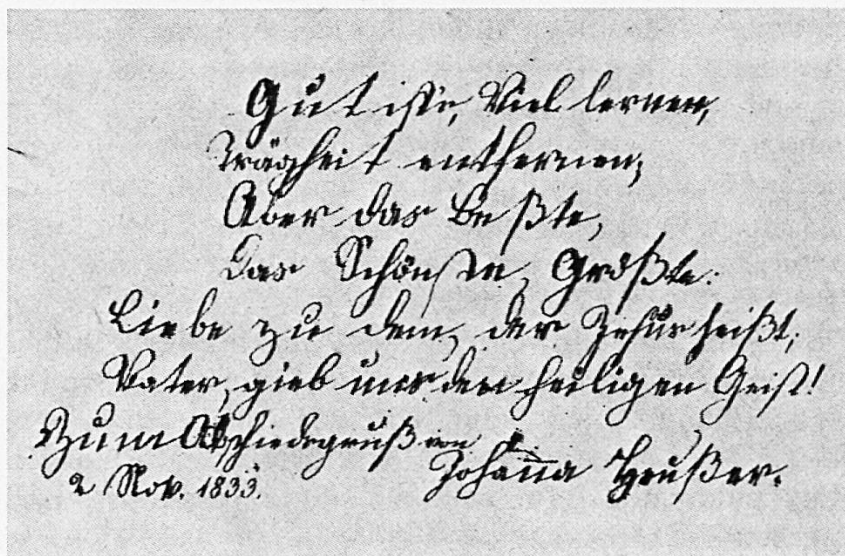 Gut ists, Viel lernen,
Trägheit entfernen;
Aber das Beßte,
Das Schönste, Größte:
Liebe zu dem, der Jesus heißt;
Vater, gieb uns den heiligen Geist!
Zum Abschiedsgruß von
Johanna Heußer.
2 Nov. 1833.